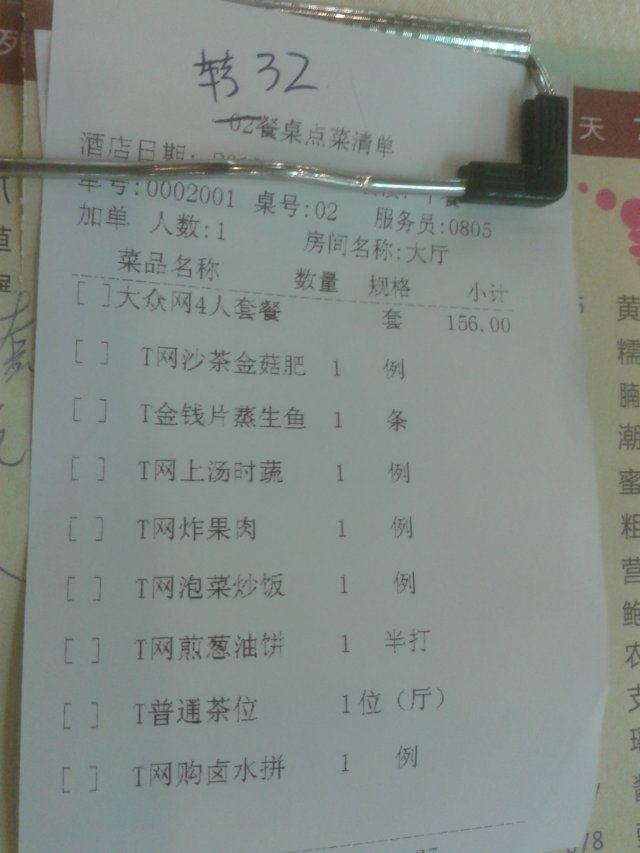 转32
02餐桌点菜清单
酒店日期:
单号:0002001 桌号:02 服务员:0805
加单 人数:1 房间名称:大厅
菜品名称 数量 规格 小计
[ ]大众网4人套餐 套 156.00
[ ] T网沙茶金菇肥 1 例
[ ] T金钱片蒸生鱼 1 条
[ ] T网上汤时蔬 1 例
[ ] T网炸果肉 1 例
[ ] T网泡菜炒饭 1 例
[ ] T网煎葱油饼 1 半打
[ ] T普通茶位 1位（厅）
[ ] T网购卤水拼 1 例
天
黄
糯
腩
潮
蜜
粗
营
鲍
农